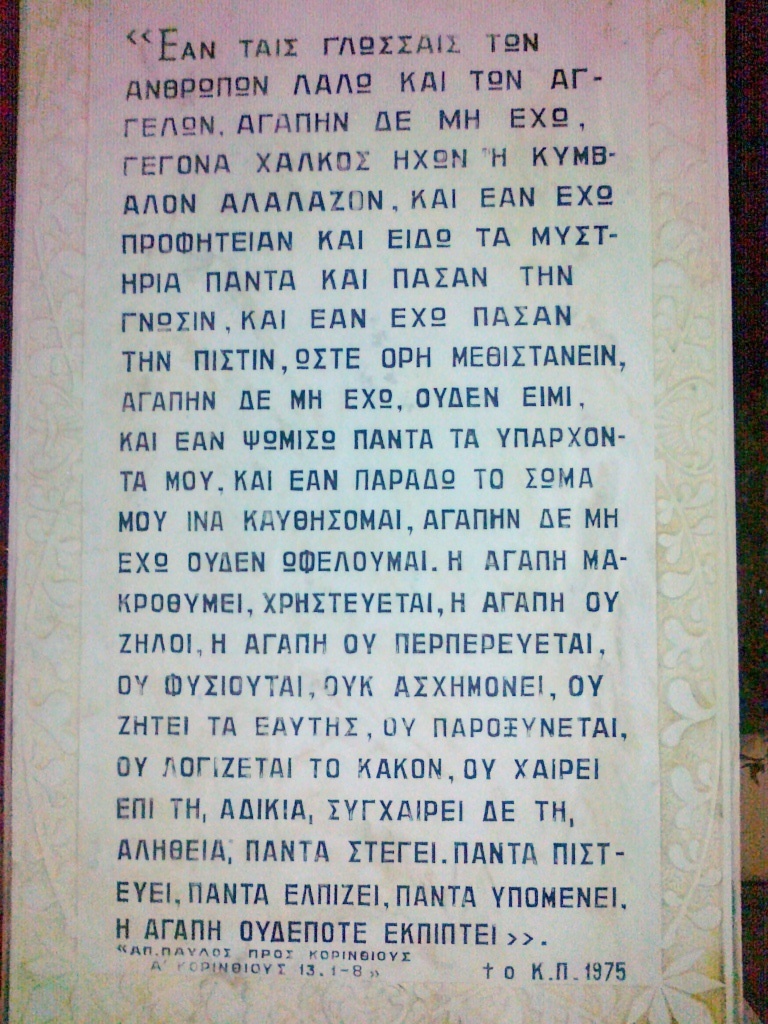 “ΕΑΝ ΤΑΙΣ ΓΛΩΣΣΑΙΣ ΤΩΝ
ΑΝΘΡΩΠΩΝ ΛΑΛΩ ΚΑΙ ΤΩΝ ΑΓ-
ΓΕΛΩΝ, ΑΓΑΠΗΝ ΔΕ ΜΗ ΕΧΩ,
ΓΕΓΟΝΑ ΧΑΛΚΟΣ ΗΧΩΝ Ἤ ΚΥΜΒ-
ΑΛΟΝ ΑΛΑΛΑΖΟΝ, ΚΑΙ ΕΑΝ ΕΧΩ
ΠΡΟΦΗΤΕΙΑΝ ΚΑΙ ΕΙΔΩ ΤΑ ΜΥΣΤ-
ΗΡΙΑ ΠΑΝΤΑ ΚΑΙ ΠΑΣΑΝ ΤΗΝ
ΓΝΩΣΙΝ, ΚΑΙ ΕΑΝ ΕΧΩ ΠΑΣΑΝ
ΤΗΝ ΠΙΣΤΙΝ, ΩΣΤΕ ΟΡΗ ΜΕΘΙΣΤΑΝΕΙΝ,
ΑΓΑΠΗΝ ΔΕ ΜΗ ΕΧΩ, ΟΥΔΕΝ ΕΙΜΙ,
ΚΑΙ ΕΑΝ ΨΩΜΙΣΩ ΠΑΝΤΑ ΤΑ ΥΠΑΡΧΟΝ-
ΤΑ ΜΟΥ, ΚΑΙ ΕΑΝ ΠΑΡΑΔΩ ΤΟ ΣΩΜΑ
ΜΟΥ ΙΝΑ ΚΑΥΘΗΣΟΜΑΙ, ΑΓΑΠΗΝ ΔΕ ΜΗ
ΕΧΩ ΟΥΔΕΝ ΩΦΕΛΟΥΜΑΙ. Η ΑΓΑΠΗ ΜΑ-
ΚΡΟΘΥΜΕΙ, ΧΡΗΣΤΕΥΕΤΑΙ, Η ΑΓΑΠΗ ΟΥ
ΖΗΛΟΙ, Η ΑΓΑΠΗ ΟΥ ΠΕΡΠΕΡΕΥΕΤΑΙ,
ΟΥ ΦΥΣΙΟΥΤΑΙ, ΟΥΚ ΑΣΧΗΜΟΝΕΙ, ΟΥ
ΖΗΤΕΙ ΤΑ ΕΑΥΤΗΣ, ΟΥ ΠΑΡΟΞΥΝΕΤΑΙ,
ΟΥ ΛΟΓΙΖΕΤΑΙ ΤΟ ΚΑΚΟΝ, ΟΥ ΧΑΙΡΕΙ
ΕΠΙ ΤΗ, ΑΔΙΚΙΑ, ΣΥΓΧΑΙΡΕΙ ΔΕ ΤΗ,
ΑΛΗΘΕΙΑ, ΠΑΝΤΑ ΣΤΕΓΕΙ. ΠΑΝΤΑ ΠΙΣΤ-
ΕΥΕΙ, ΠΑΝΤΑ ΕΛΠΙΖΕΙ, ΠΑΝΤΑ ΥΠΟΜΕΝΕΙ.
Η ΑΓΑΠΗ ΟΥΔΕΠΟΤΕ ΕΚΠΙΠΤΕΙ».
“ΑΠ. ΠΑΥΛΟΣ ΠΡΟΣ ΚΟΡΙΝΘΙΟΥΣ
Α' ΚΟΡΙΝΘΙΟΥΣ 13.1-8” † ο Κ.Π. 1975